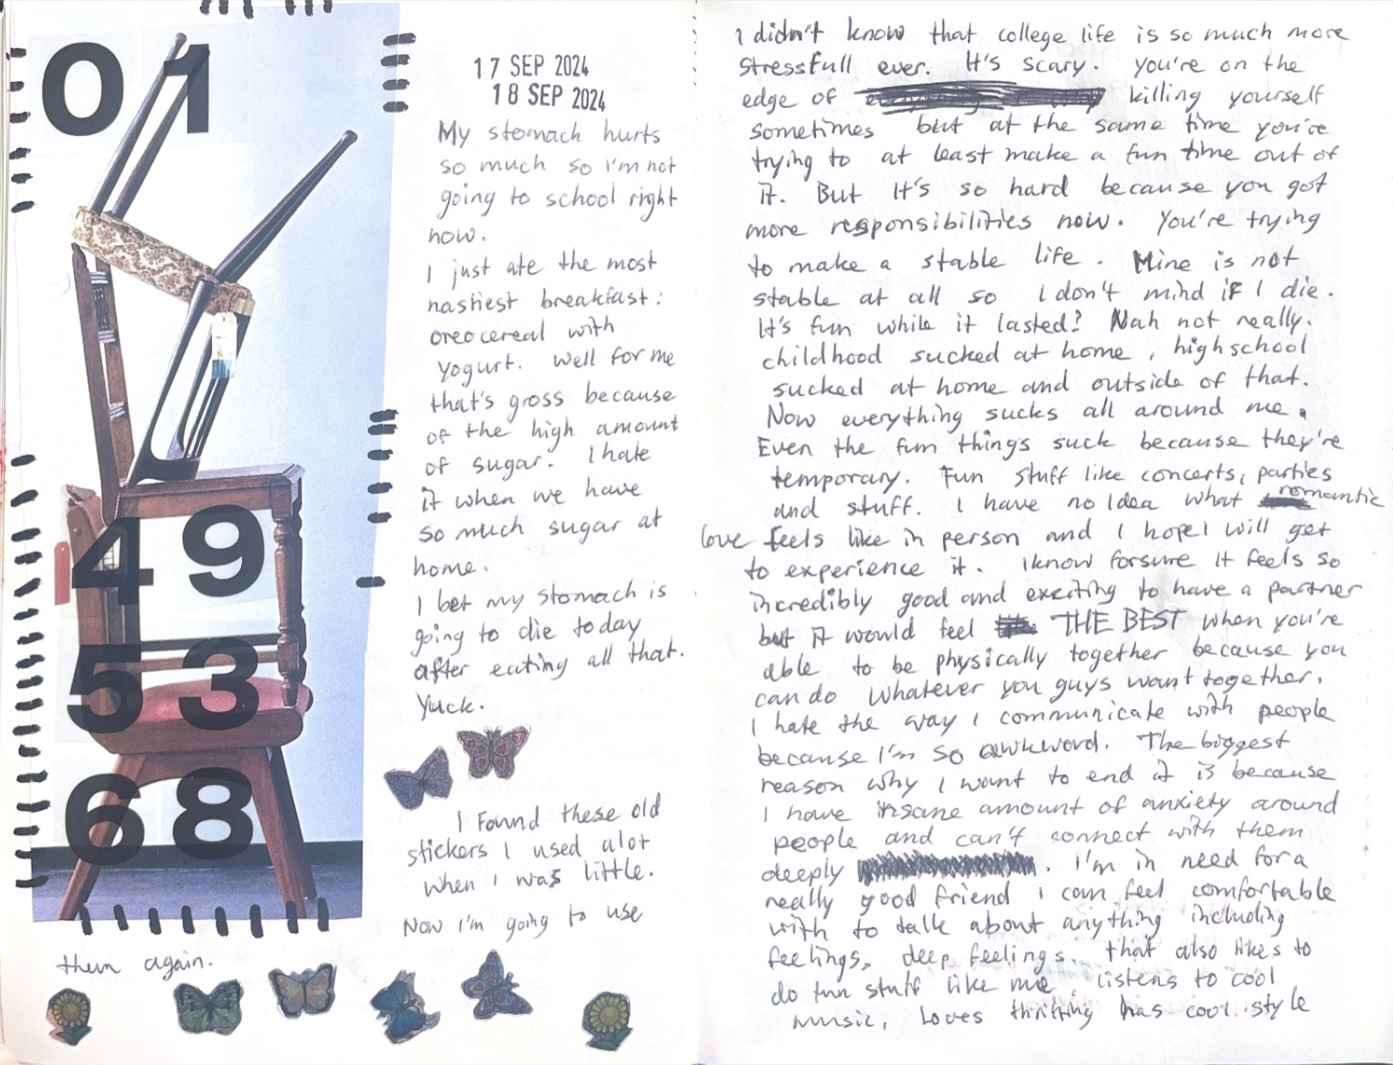 01
49
53
68
17 SEP 2024
18 SEP 2024
My stomach hurts
so much so i'm not
going to school right
now.
I just ate the most
nastiest breakfast:
oreo cereal with
yogurt. Well for me
that's gross because
of the high amount
of sugar. I hate
it when we have
so much sugar at
home.
I bet my stomach is
going to die today
after eating all that.
Yuck.
I found these old
stickers I used alot
when I was little.
Now i'm going to use
them again.
I didn't know that college life is so much more
stressfull ever. It's scary. you're on the
edge of killing yourself
sometimes but at the same time you're
trying to at least make a fun time out of
it. But It's so hard because you got
more responsibilities now. You're trying
to make a stable life. Mine is not
stable at all so I don't mind if I die.
It's fun while it lasted? Nah not really.
childhood sucked at home, highschool
sucked at home and outside of that.
Now everything sucks all around me.
Even the fun things suck because they're
temporary. Fun stuff like concerts, parties
and stuff. I have no Idea what romantic
love feels like in person and I hope I will get
to experience it. I know forsure It feels so
incredibly good and exciting to have a partner
but it would feel THE BEST when you're
able to be physically together because you
can do whatever you guys want together.
I hate the way I communicate with people
because I'm so awkword. The biggest
reason why I want to end it is because
I have insane amount of anxiety around
people and can't connect with them
deeply . I'm in need for a
really good friend I can feel comfortable
with to talk about anything including
feelings, deep feelings. that also likes to
do fun stuff like me, listens to cool
music, Loves thrifting has cool style